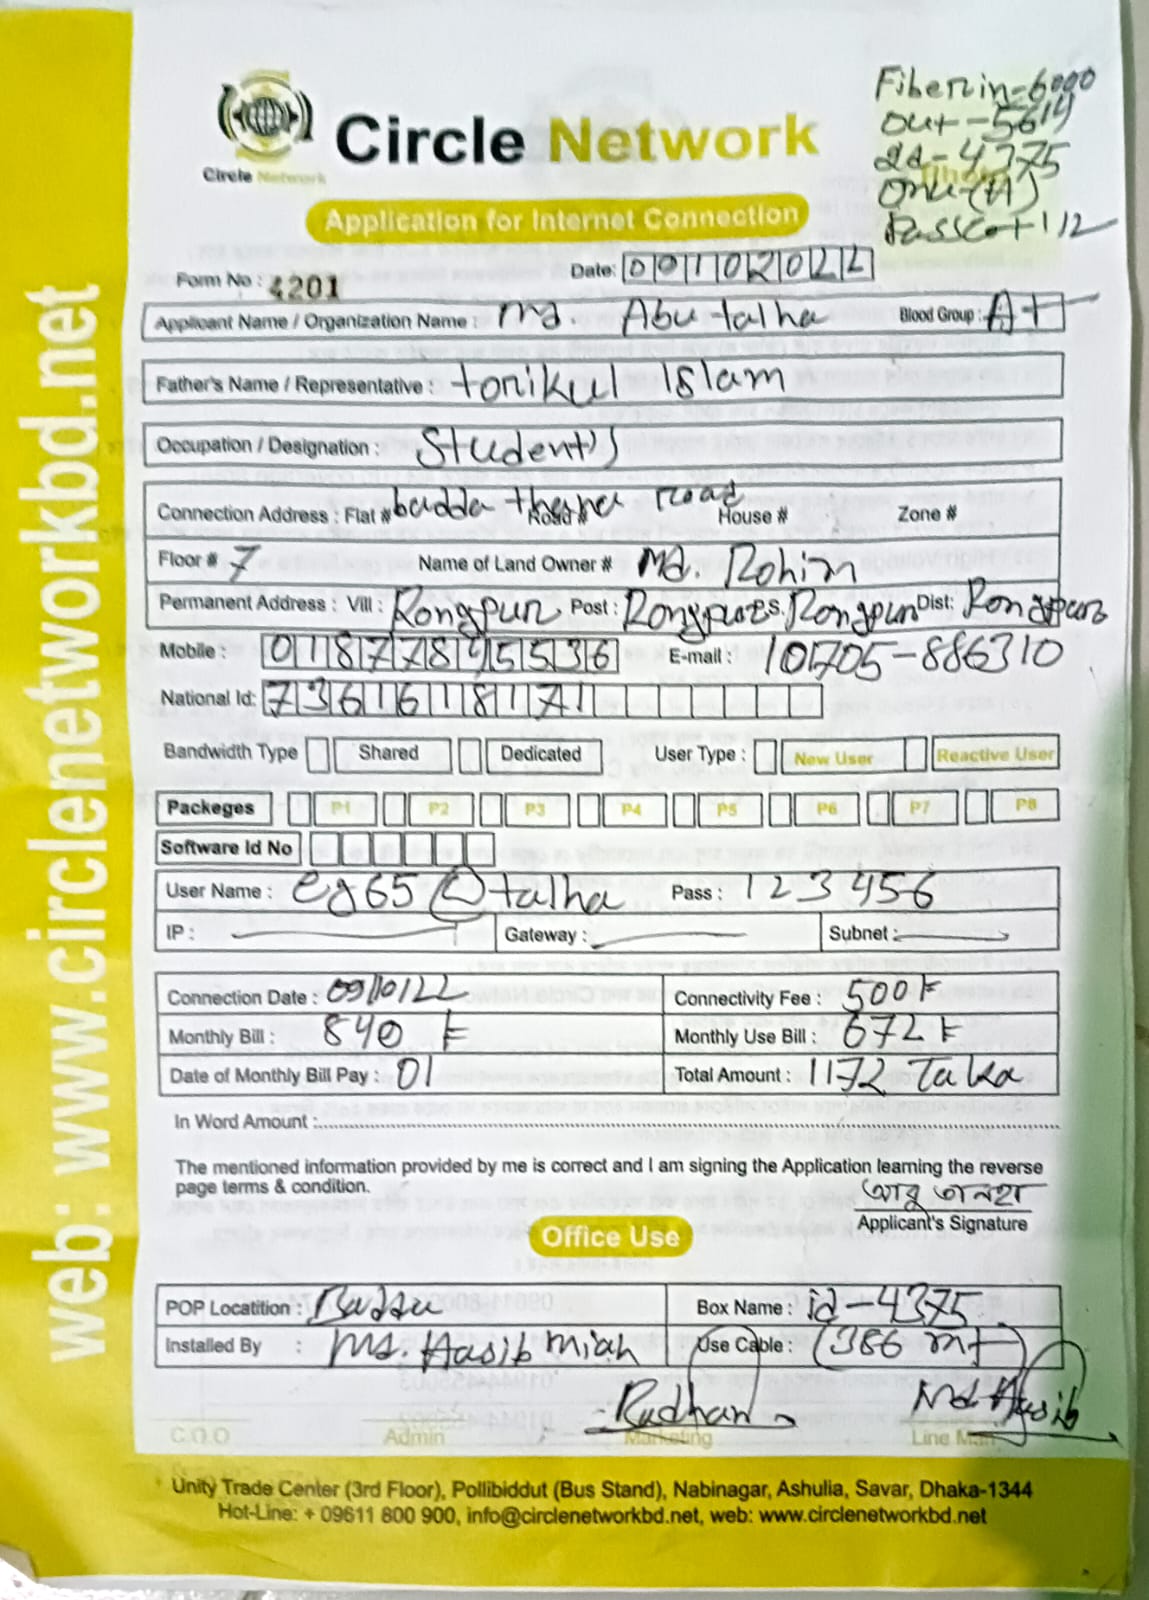 Fiber in-6000
out-5614
id-4375
onu-(A)
Circle Network
Circle Network
Application for Internet Connection
Form No : 4201 Date: 09102022
Applicant Name / Organization Name : Md. Abu talha Blood Group: A+
Father's Name / Representative : torikul Islam
Occupation / Designation : Student's
Connection Address : Flat # badda thana road Road # House # Zone #
Floor # 7 Name of Land Owner # Md. Rohim
Permanent Address : Vill : Rongpur Post : Rongpur P.S. Rongpur Dist: Rongpur
Mobile : 01877845536 E-mail : 01705-886310
National Id: 7361618171
Bandwidth Type Shared Dedicated User Type : New User Reactive User
Packeges P1 P2 P3 P4 P5 P6 P7 P8
Software Id No
User Name : eg65@talha Pass : 123456
IP : Gateway : Subnet :
Connection Date : 09/10/22 Connectivity Fee : 500 ৳
Monthly Bill : 840 ৳ Monthly Use Bill : 672 ৳
Date of Monthly Bill Pay : 01 Total Amount : 1172 Taka
In Word Amount :
The mentioned information provided by me is correct and I am signing the Application learning the reverse
page terms & condition.
আবু তালহা
Applicant's Signature
Office Use
POP Locatition : Badda Box Name : id-4375
Installed By : Md. Hasib miah Use Cable : (386 mt)
Md. Hasib
C.O.O Admin Marketing Line Man
Unity Trade Center (3rd Floor), Pollibiddut (Bus Stand), Nabinagar, Ashulia, Savar, Dhaka-1344
Hot-Line: + 09611 800 900, info@circlenetworkbd.net, web: www.circlenetworkbd.net
web: www.circlenetworkbd.net